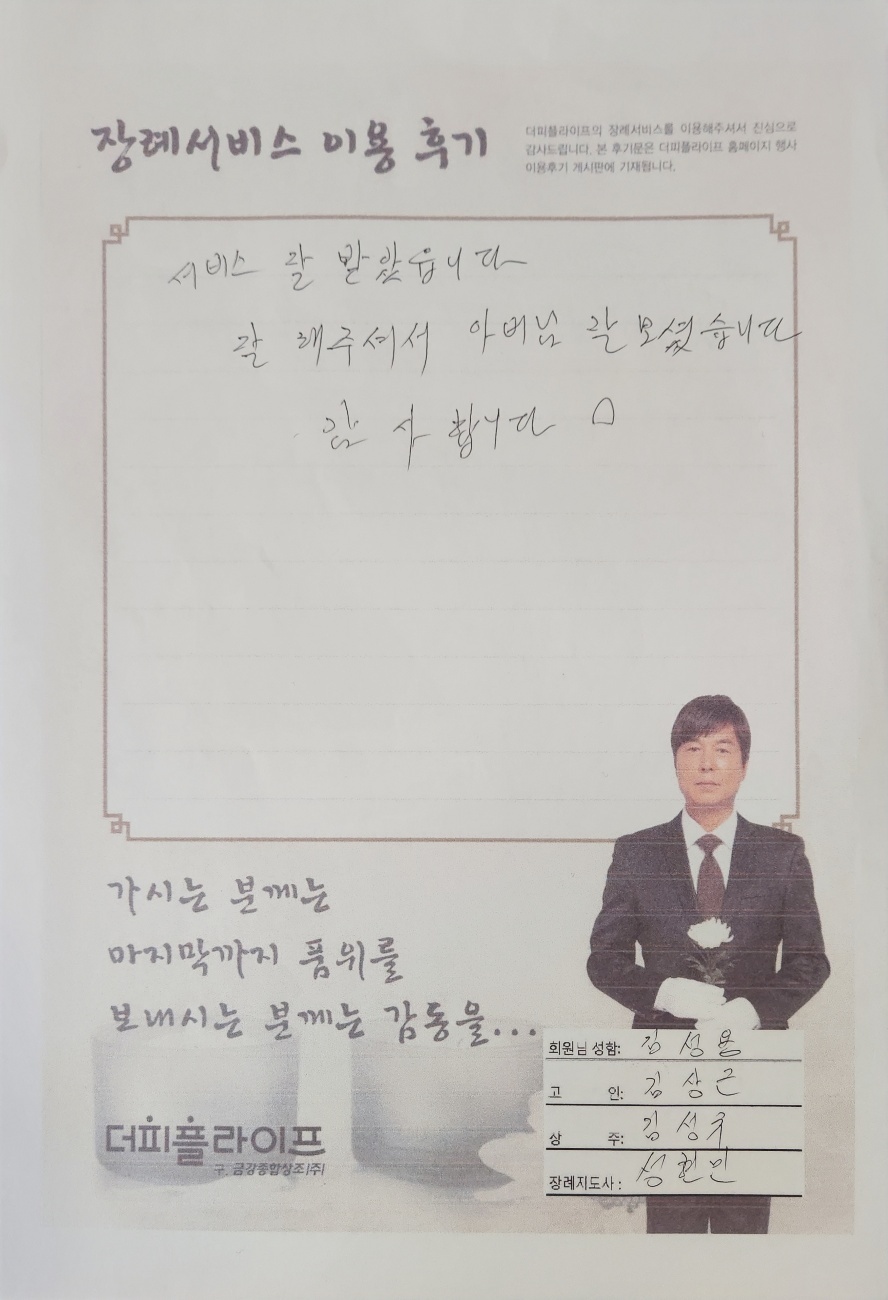 장례서비스 이용 후기
더피플라이프의 장례서비스를 이용해주셔서 진심으로
감사드립니다. 본 후기문은 더피플라이프 홈페이지 행사
이용후기 게시판에 기재됩니다.
서비스 잘 받았읍니다
잘 해주셔서 아버님 잘 모셨습니다
감사합니다
가시는 분께는
마지막까지 품위를
보내시는 분께는 감동을...
더피플라이프
구. 금강종합상조(주)
회원님 성함: 김성용
고 인: 김상근
상 주:
장례지도사: